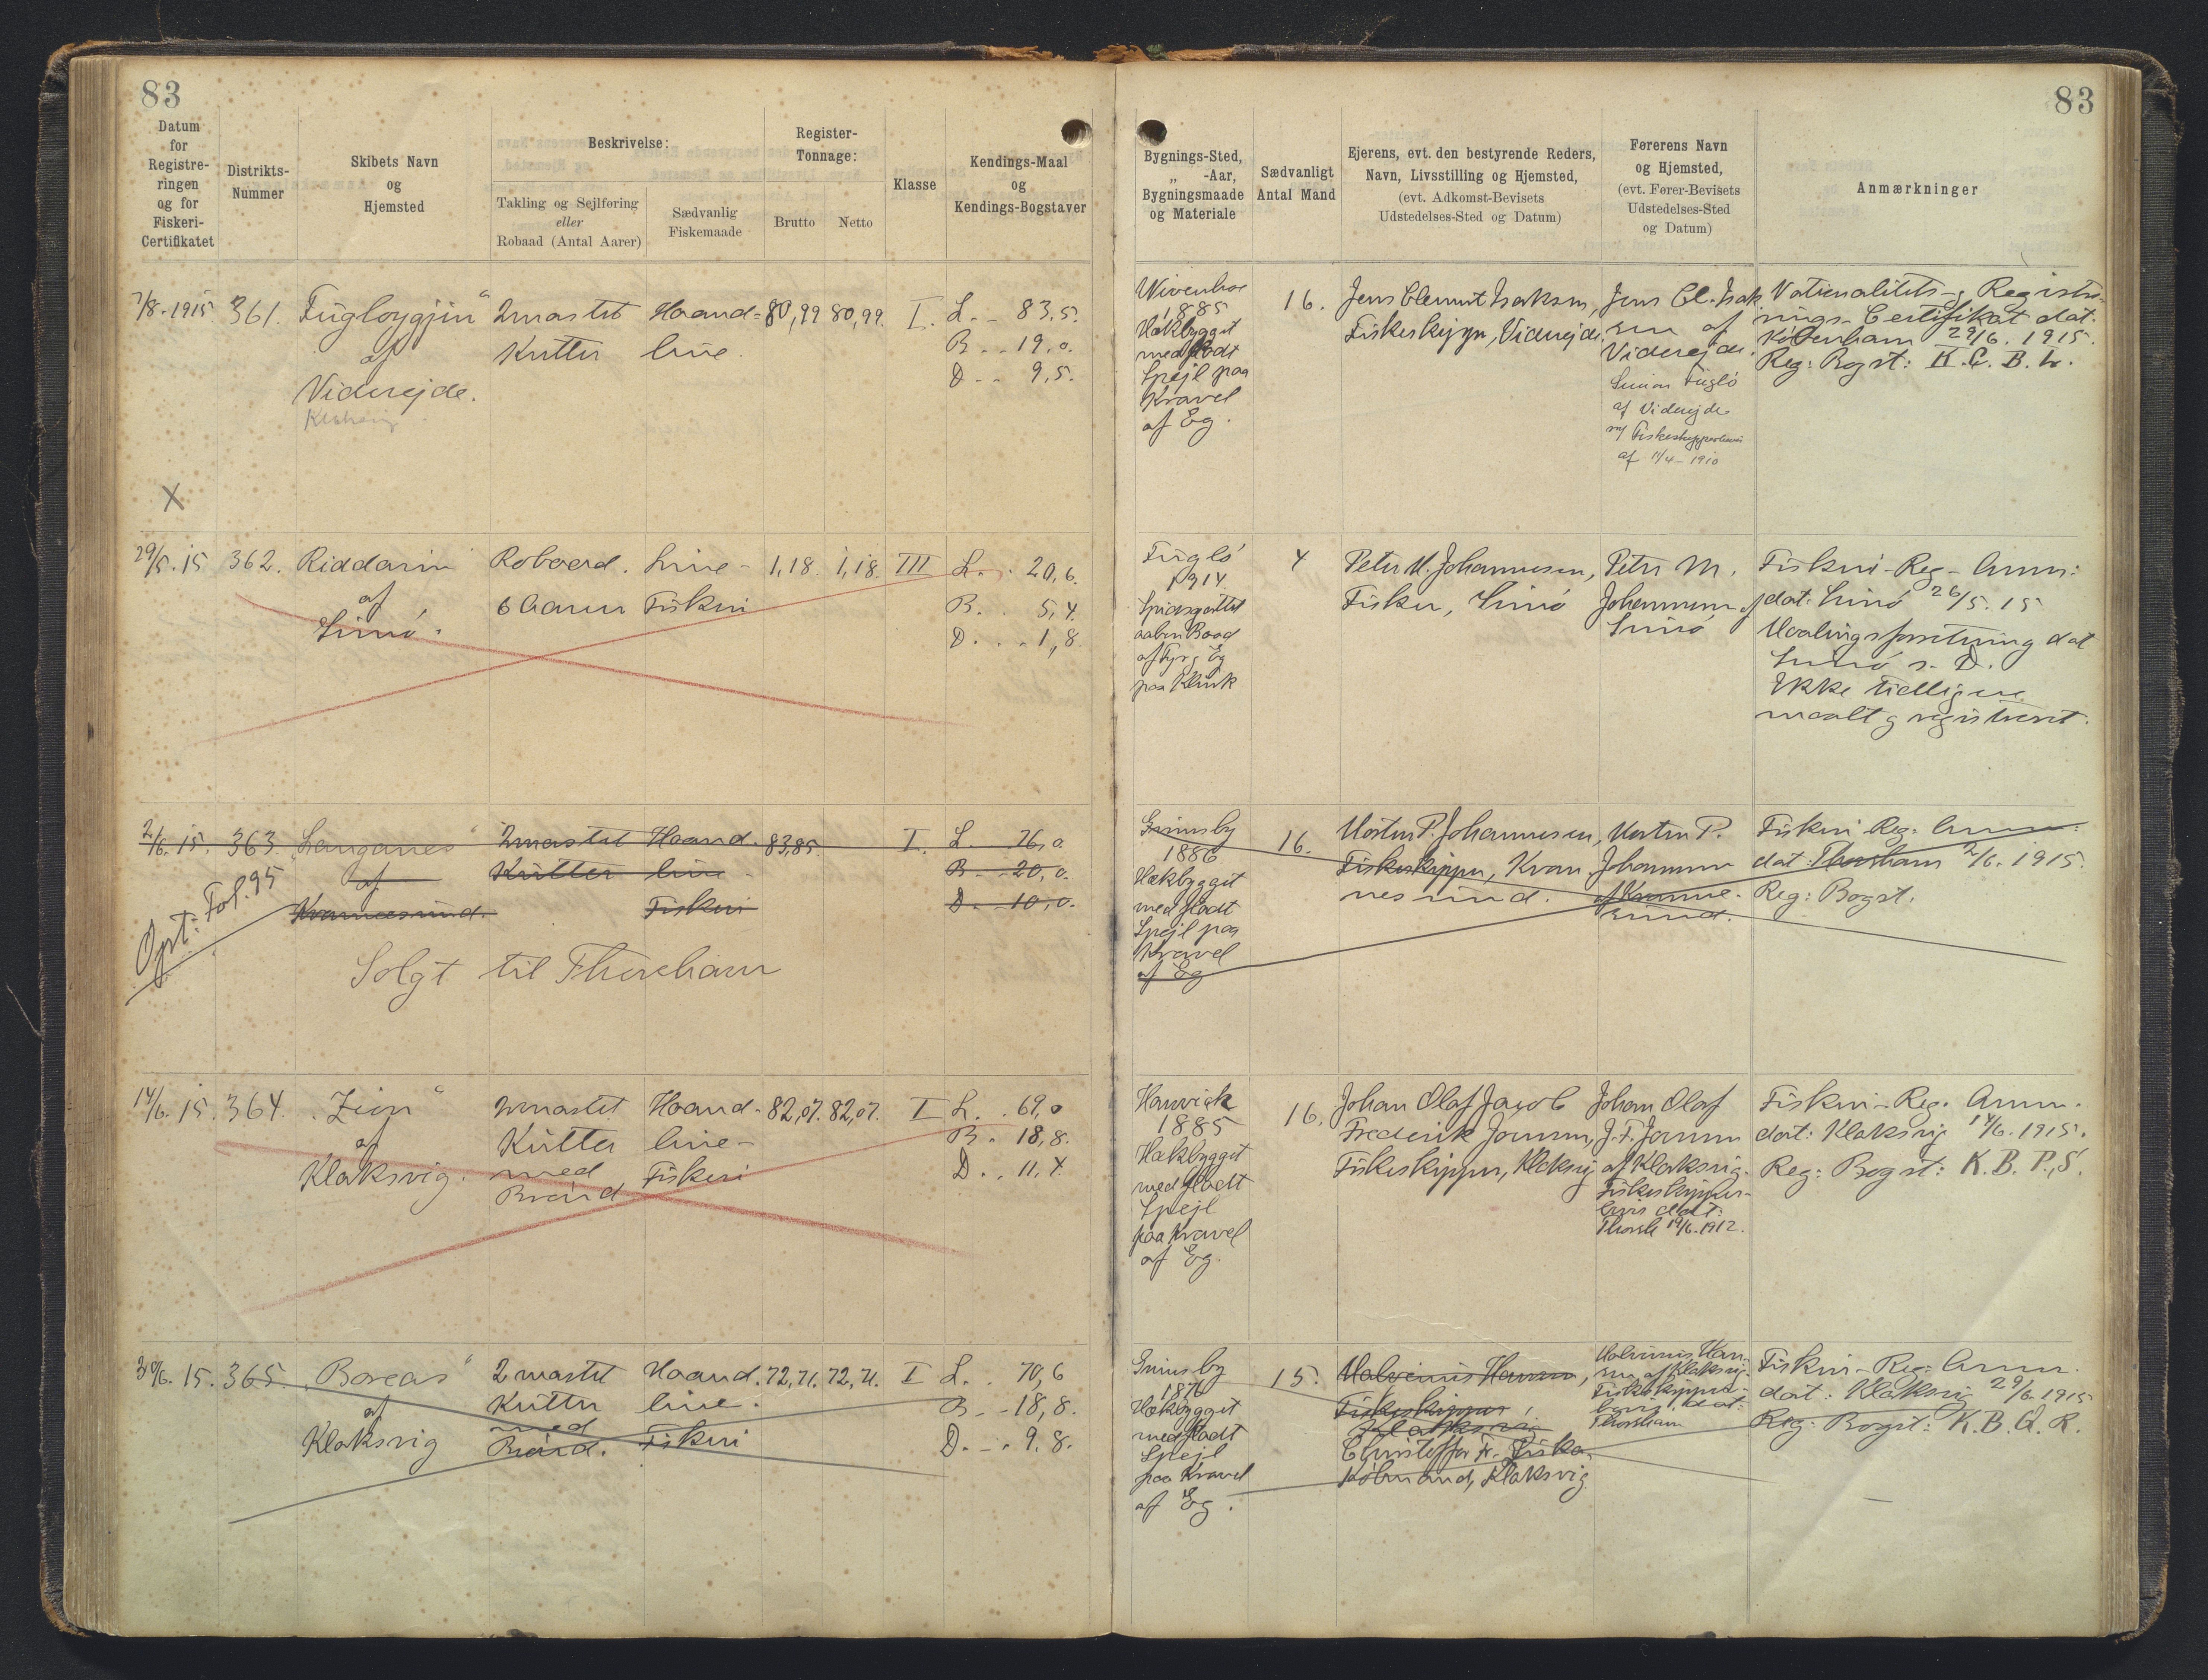 83
83
Datum
for
Registre-
ringen
og for
Fiskeri-
Certifikatet
Distrikts-
Nummer
Skibets Navn
og
Hjemsted
Beskrivelse:
Takling og Sejlføring
eller
Robaad (Antal Aarer)
Sædvanlig
Fiskemaade
Register-
Tonnage:
Brutto
Netto
Klasse
Kendings-Maal
og
Kendings-Bogstaver
Bygnings-Sted,
„ -Aar,
Bygningsmaade
og Materiale
Sædvanligt
Antal Mand
Ejerens, evt. den bestyrende Reders,
Navn, Livsstilling og Hjemsted,
(evt. Adkomst-Bevisets
Udstedelses-Sted og Datum)
Førerens Navn
og Hjemsted,
(evt. Fører-Bevisets
Udstedelses-Sted
og Datum)
Anmærkninger
7/8.1915
361.
"Fugloygjin"
af
Viderejde.
2mastet
Kutter
Haand-
line.
80,99
80,99.
I.
L. - 83,5.
B. - 19,0.
D. - 9,5.
Wivenhoe
1885
Hækbygget
med fladt
Spejl paa
Kravel
af Eg.
16.
Jens Clement Isaksen,
Fiskeskipper, Viderejde.
Jens Cl. Isak
sen af
Viderejde.
Simon Fuglø
af Viderejde
af 11/4-1910
Nationalitets- g Registre-
rings-Certifikat dat.
København 29/6. 1915.
Reg: Bogst: K.C.B.L.
X
29/5.15
362.
Riddarin
af
Svinø.
Robaad.
6 Aarer
Line-
Fiskeri
1,18.
1,18.
III
L. . 20,6.
B. . 5,4.
D. . . 1,8.
Fuglø
1914
Spidsgattet
aaben Baad
af Fyr g Eg
paa Klink
4
Peter M. Johannesen,
Fisker, Svinø
Peter M.
Johannesen af
Svinø
Fiskeri-Reg- Anm:
dat: Svinø 26/5. 15
Maalingsforretning dat
Svinø s. D.
Ikke tidligere
maalt g registreret.
2/6.15.
363
"Langanes"
af
Kvannesund.
Opst: Fol. 95
2mastet
Kutter
Haand-
line
Fiskeri
83,85.
I.
L. 76,0
B. 20,0.
D. 10,0.
Solgt til Thorshavn
Grimsby
1886
Hækbygget
med fladt
Spejl paa
Kravel
af Eg
16.
Morten P. Johannesen,
Fiskeskipper, Kvan-
nesund.
Morten P.
Johannesen
af Kvanne-
sund.
Fiskeri-Reg: Anm:
dat: Thorshavn 2/6. 1915.
Reg: Bogst.
14/6.15.
364.
"Zion"
af
Klaksvig.
2mastet
Kutter
med
Brønd
Haand-
line-
Fiskeri
82,07.
82,07.
I
L. . 69,0
B. 18,8.
D. . 11,4.
1885
Hækbygget
med fladt
Spejl
paa Kravel
af Eg.
16.
Johan Olaf Jacob
Frederik Joensen,
Fiskeskipper, Klaksvig
Johan Olaf
J. F. Joensen
af Klaksvig.
Fiskeskipper-
bevis dat:
Thorsh 19/6.1912.
Fiskeri-Reg. Anm.
dat: Klaksvig 14/6.1915.
Reg: Bogst: K.B.P.S.
30/6.15.
365.
"Boreas"
af
Klaksvig
2mastet
Kutter
med
Brønd.
Haand-
line-
Fiskeri
72,71.
72,71.
I
L. . 70,6
B. - 18,8.
D. - . 9,8.
Grimsby
1876
Hækbygget
med fladt
Spejl
paa Kravel
af Eg.
15.
Malvinus Hansen,
Fiskeskipper,
Klaksvig
Købmand, Klaksvig
Malvinus Han-
sen af Klaksvig.
Fiskeskipper-
bevis dat:
Thorshavn
Fiskeri-Reg: Anm.
dat: Klaksvig 29/6 1915
Reg: Bogst: K.B.Q.R.